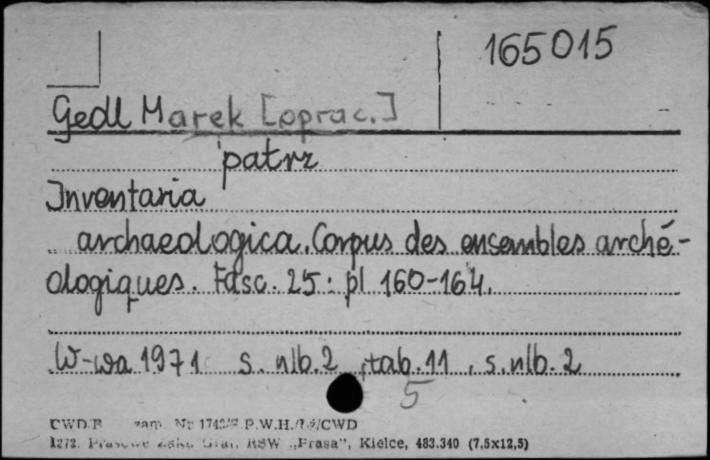 165015
Gedl Marek [oprac.]
patrz
Inventaria
archaeologica. Corpus des ensembles arché-
ologiques. Fasc. 25: pl 160-164.
W-wa 1971 s. nlb. 2, tab. 11, s. nlb. 2
5
CWD zam. Nr P.W.H. CWD
RSW „Prasa”, Kielce, 483.340 (7,5x12,5)